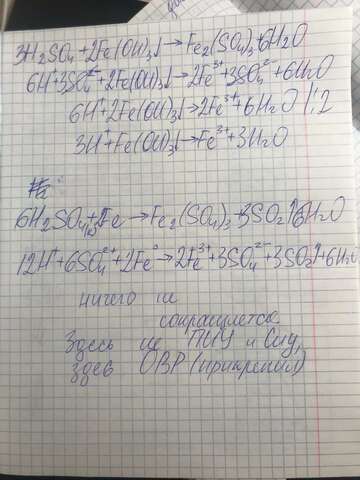 3H₂SO₄ + 2Fe(OH)₃↓ → Fe₂(SO₄)₃ + 6H₂O
6H⁺ + 3SO₄²⁻ + 2Fe(OH)₃↓ → 2Fe³⁺ + 3SO₄²⁻ + 6H₂O
6H⁺ + 2Fe(OH)₃↓ → 2Fe³⁺ + 6H₂O |:2
3H⁺ + Fe(OH)₃↓ → Fe³⁺ + 3H₂O
6H₂SO₄ + 2Fe → Fe₂(SO₄)₃ + 3SO₂↑ + 6H₂O
12H⁺ + 6SO₄²⁺ + 2Fe⁰ → 2Fe³⁺ + 3SO₄²⁻ + 3SO₂↑ + 6H₂O
ничего не
сокращается
Здесь не ПИУ и СИУ,
здес ОВР (прикрепил)